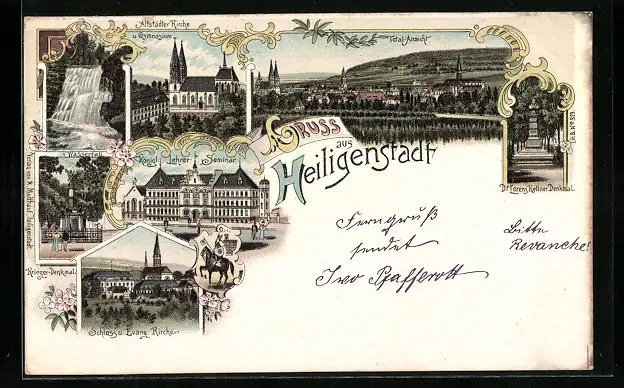 Altstädter Kirche
u. Gymnasium
Total-Ansicht
Wasserfall
Königl. Lehrer-Seminar
GRUSS
aus
Heiligenstadt
Dr. Lorenz Kellner Denkmal.
Krieger-Denkmal.
Schloss u. Evang. Kirche
Ferngruß
sendet
Ivo Pfafferott
Bitte
Revanche!